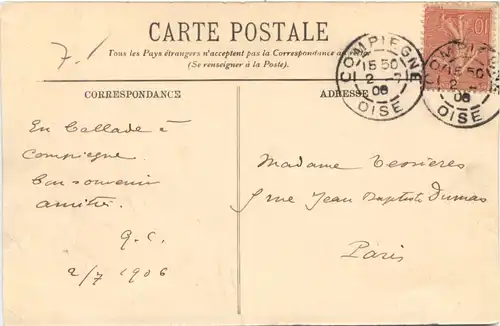 7.1
CARTE POSTALE
Tous les Pays étrangers n'acceptent pas la Correspondance au
(Se renseigner à la Poste).
CORRESPONDANCE
ADRESSE
COMPIEGNE
15 50
2 -7
06
OISE
COMPIEGNE
15 50
2 -7
06
OISE
10
En Ballade à
Compiegne
Bon souvenir
amitiés.
G. C.
2/7 1906
Madame Tessières
5 rue Jean Baptiste Dumas
Paris